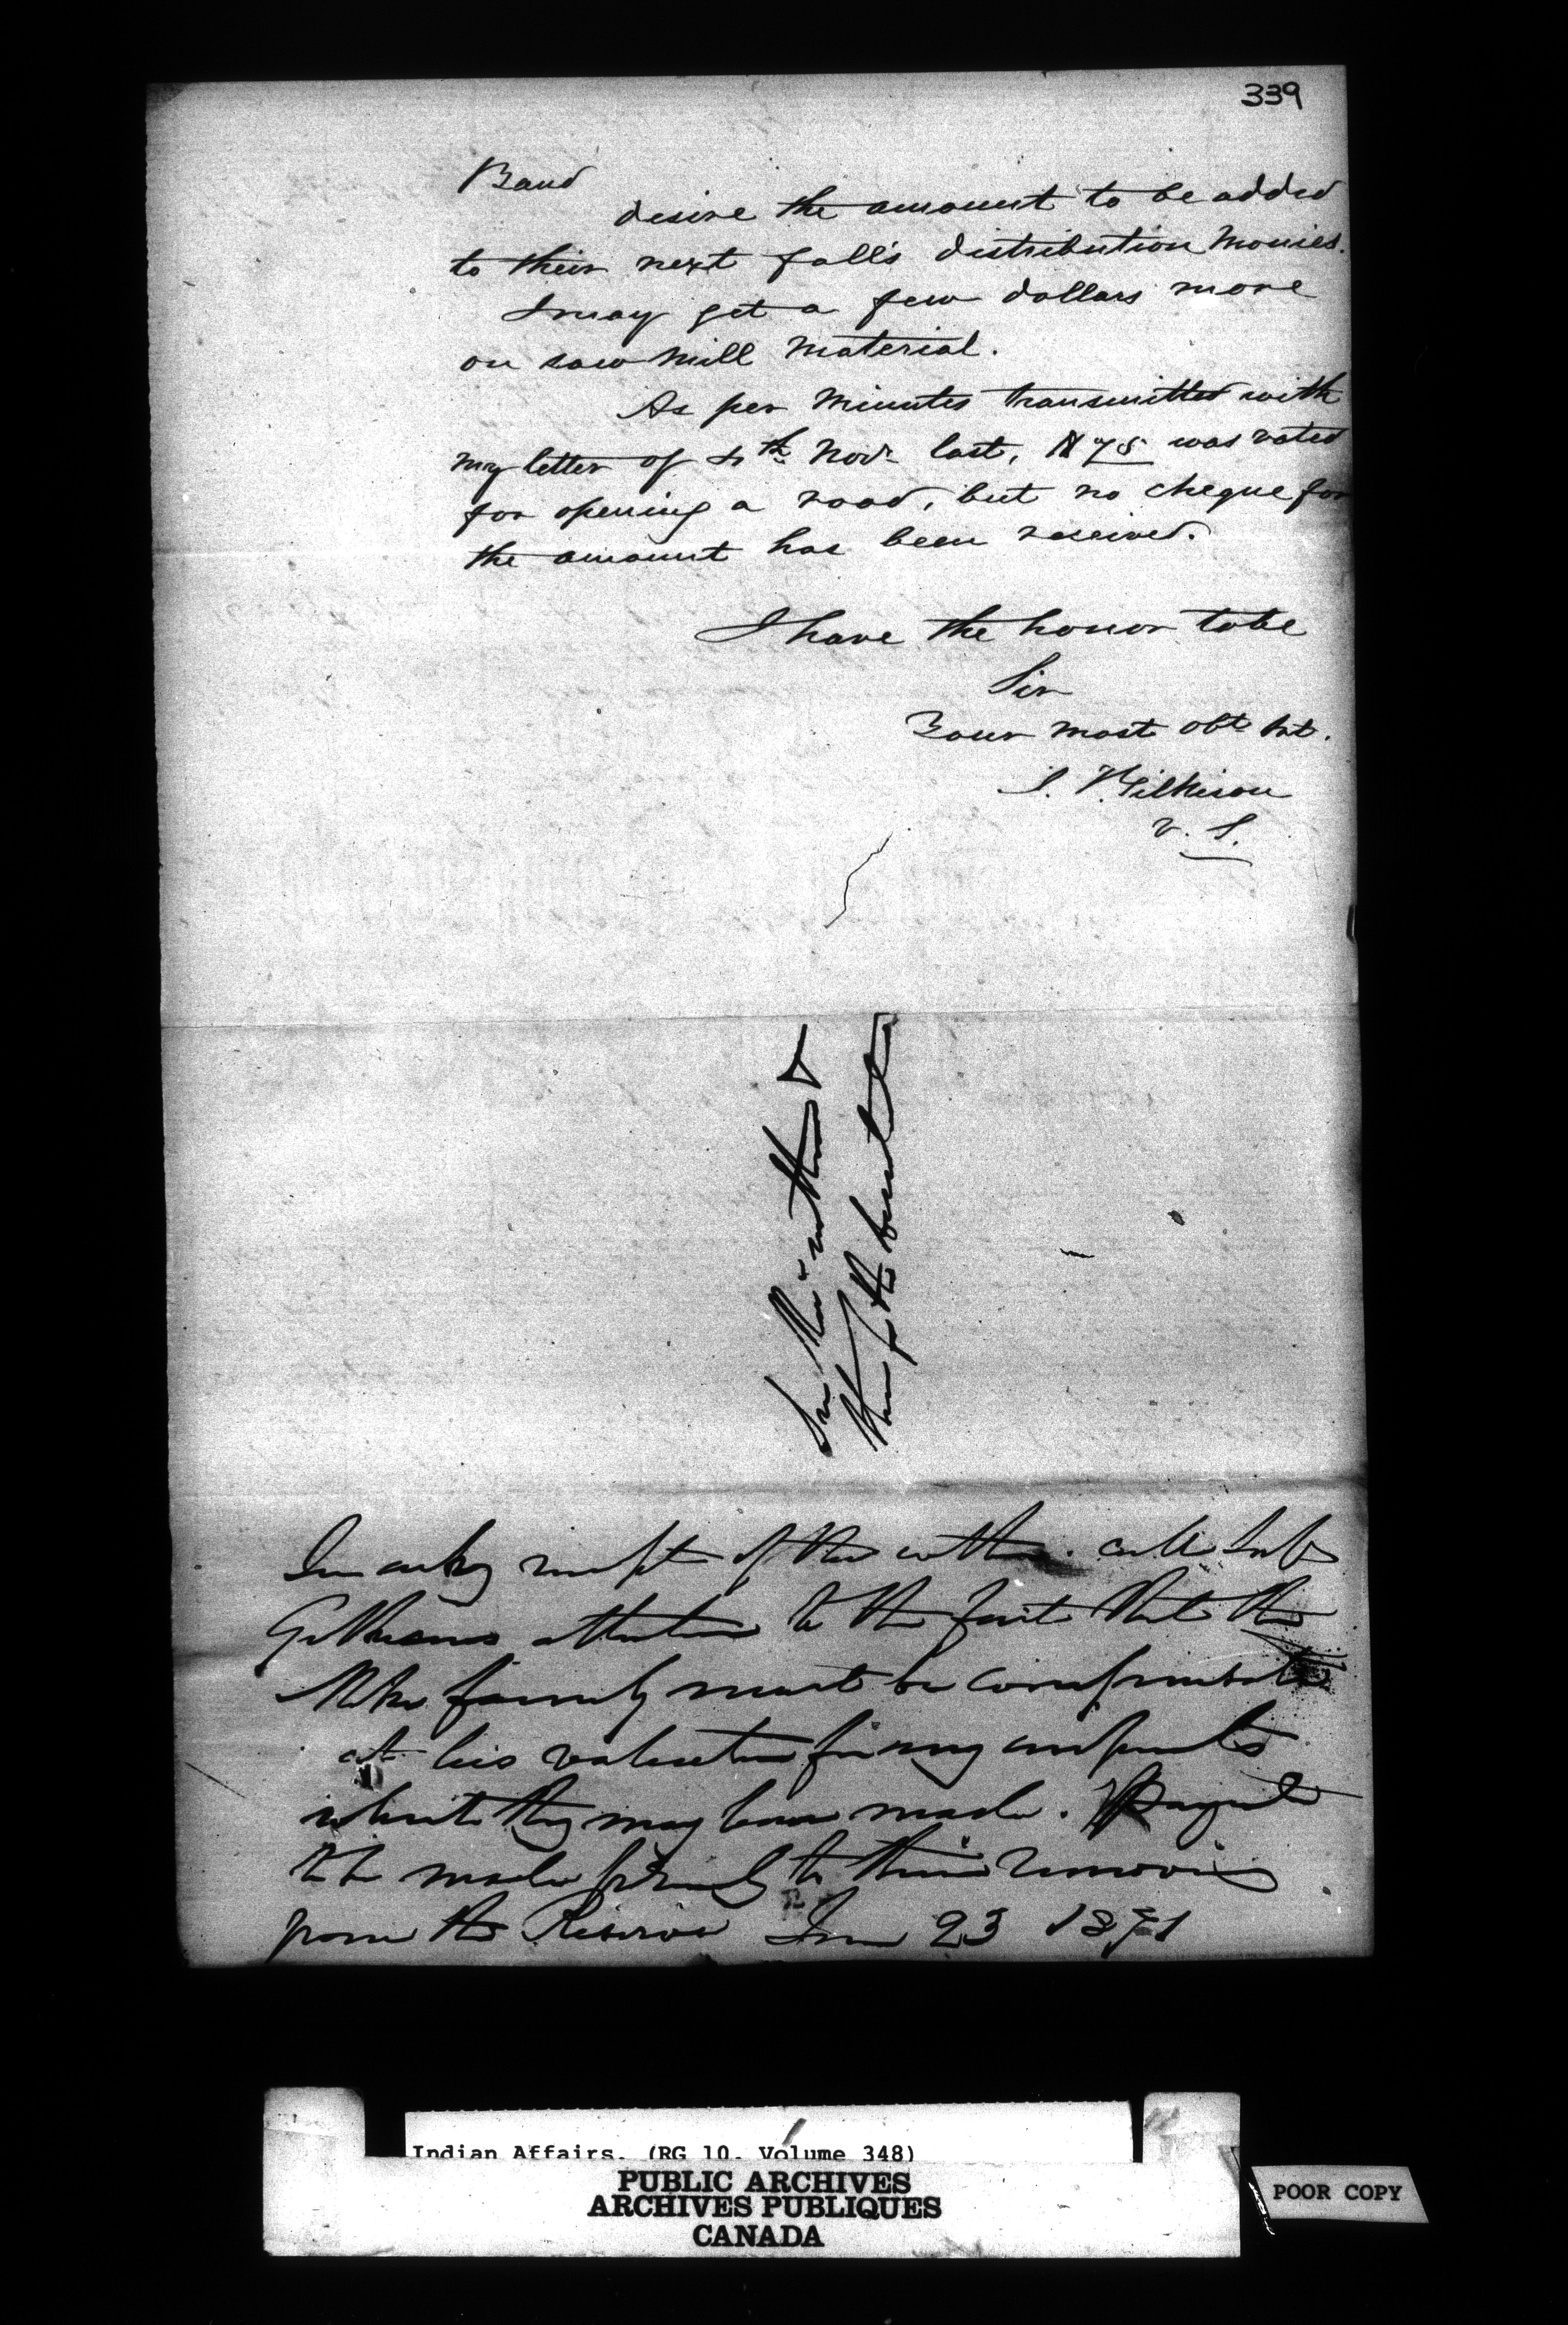 339
Band
desire the amount to be added
to their next fall's distribution monies.
I may get a few dollars more
on saw mill material.
As per minutes transmitted with
my letter of 4th Nov. last, $75 was voted
for opening a road, but no cheque for
the amount has been received.
I have the honor to be
Sir
Your most obt Svt.
J. Gilkison
V. S.
of the within. call Supt
Gilkison's attention to the fact that the
family must be
at his valuation for any
which they may have made.
to be made to their removing
from the Reserve June 23 1871
Indian Affairs. (RG 10, Volume 348)
PUBLIC ARCHIVES
ARCHIVES PUBLIQUES
CANADA
POOR COPY